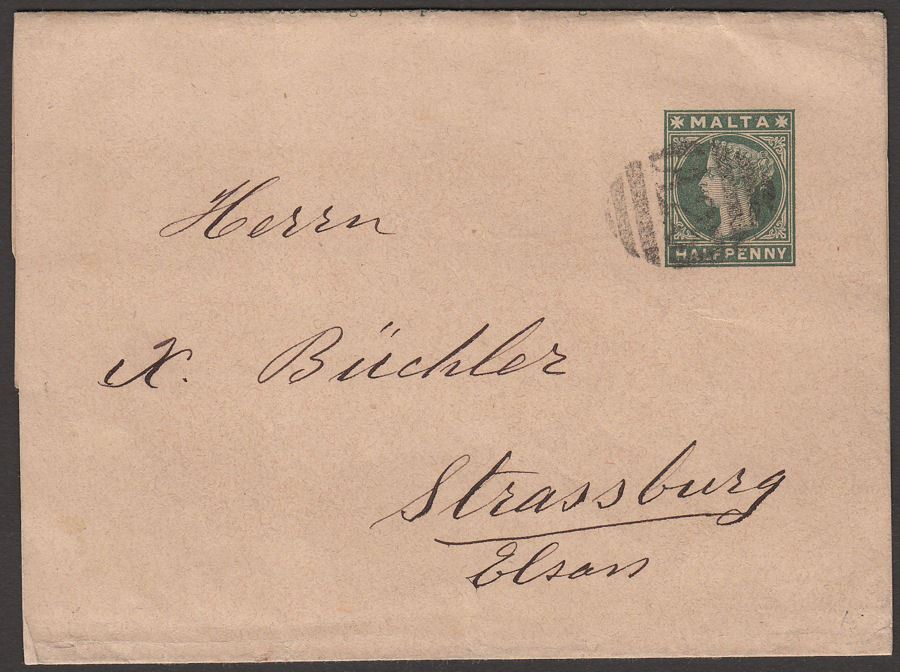 MALTA
HALFPENNY
Herrn
X. Büchler
Strassburg
Elsass